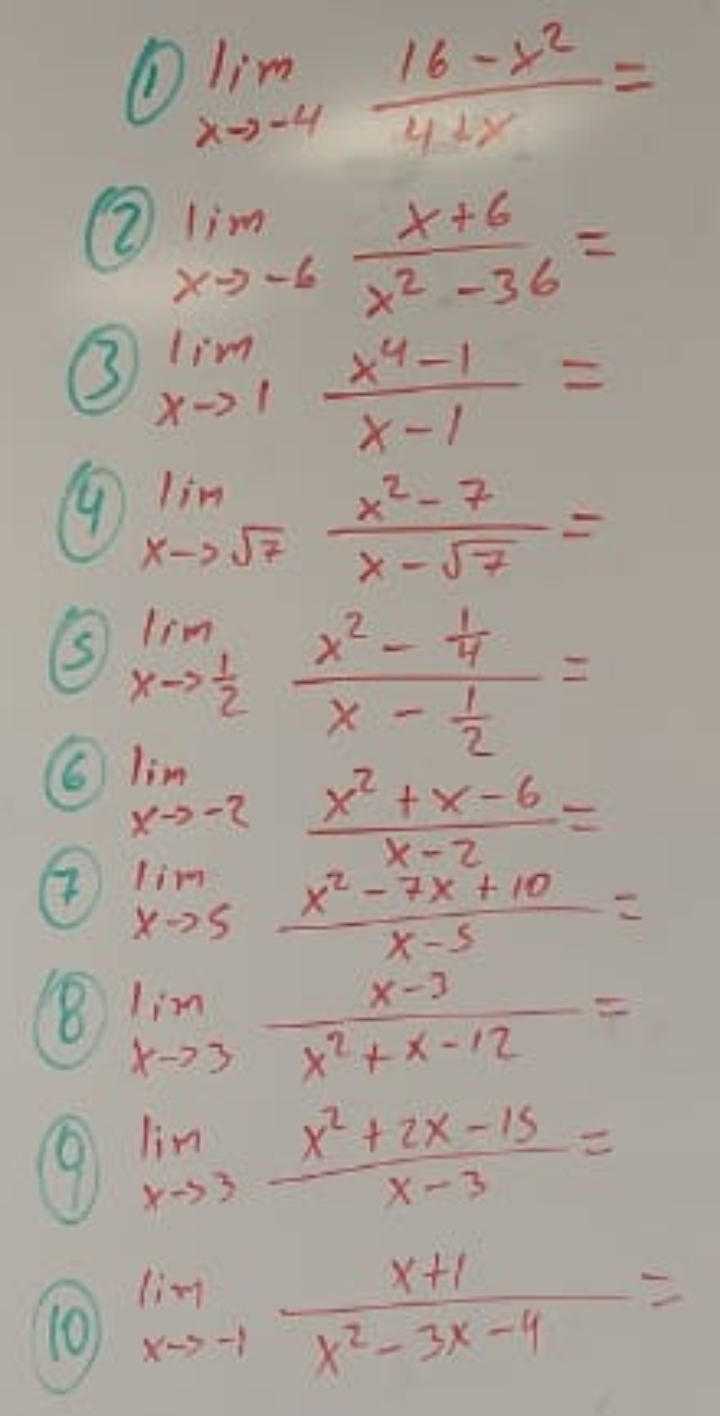 ① lim x→-4 (16-x²)/(4+x) =
② lim x→-6 (x+6)/(x²-36) =
③ lim x→1 (x⁴-1)/(x-1) =
④ lim x→√7 (x²-7)/(x-√7) =
⑤ lim x→1/2 (x²-1/4)/(x-1/2) =
⑥ lim x→-2 (x²+x-6)/(x-2) =
⑦ lim x→5 (x²-7x+10)/(x-5) =
⑧ lim x→3 (x-3)/(x²+x-12) =
⑨ lim x→3 (x²+2x-15)/(x-3) =
⑩ lim x→-1 (x+1)/(x²-3x-4) =